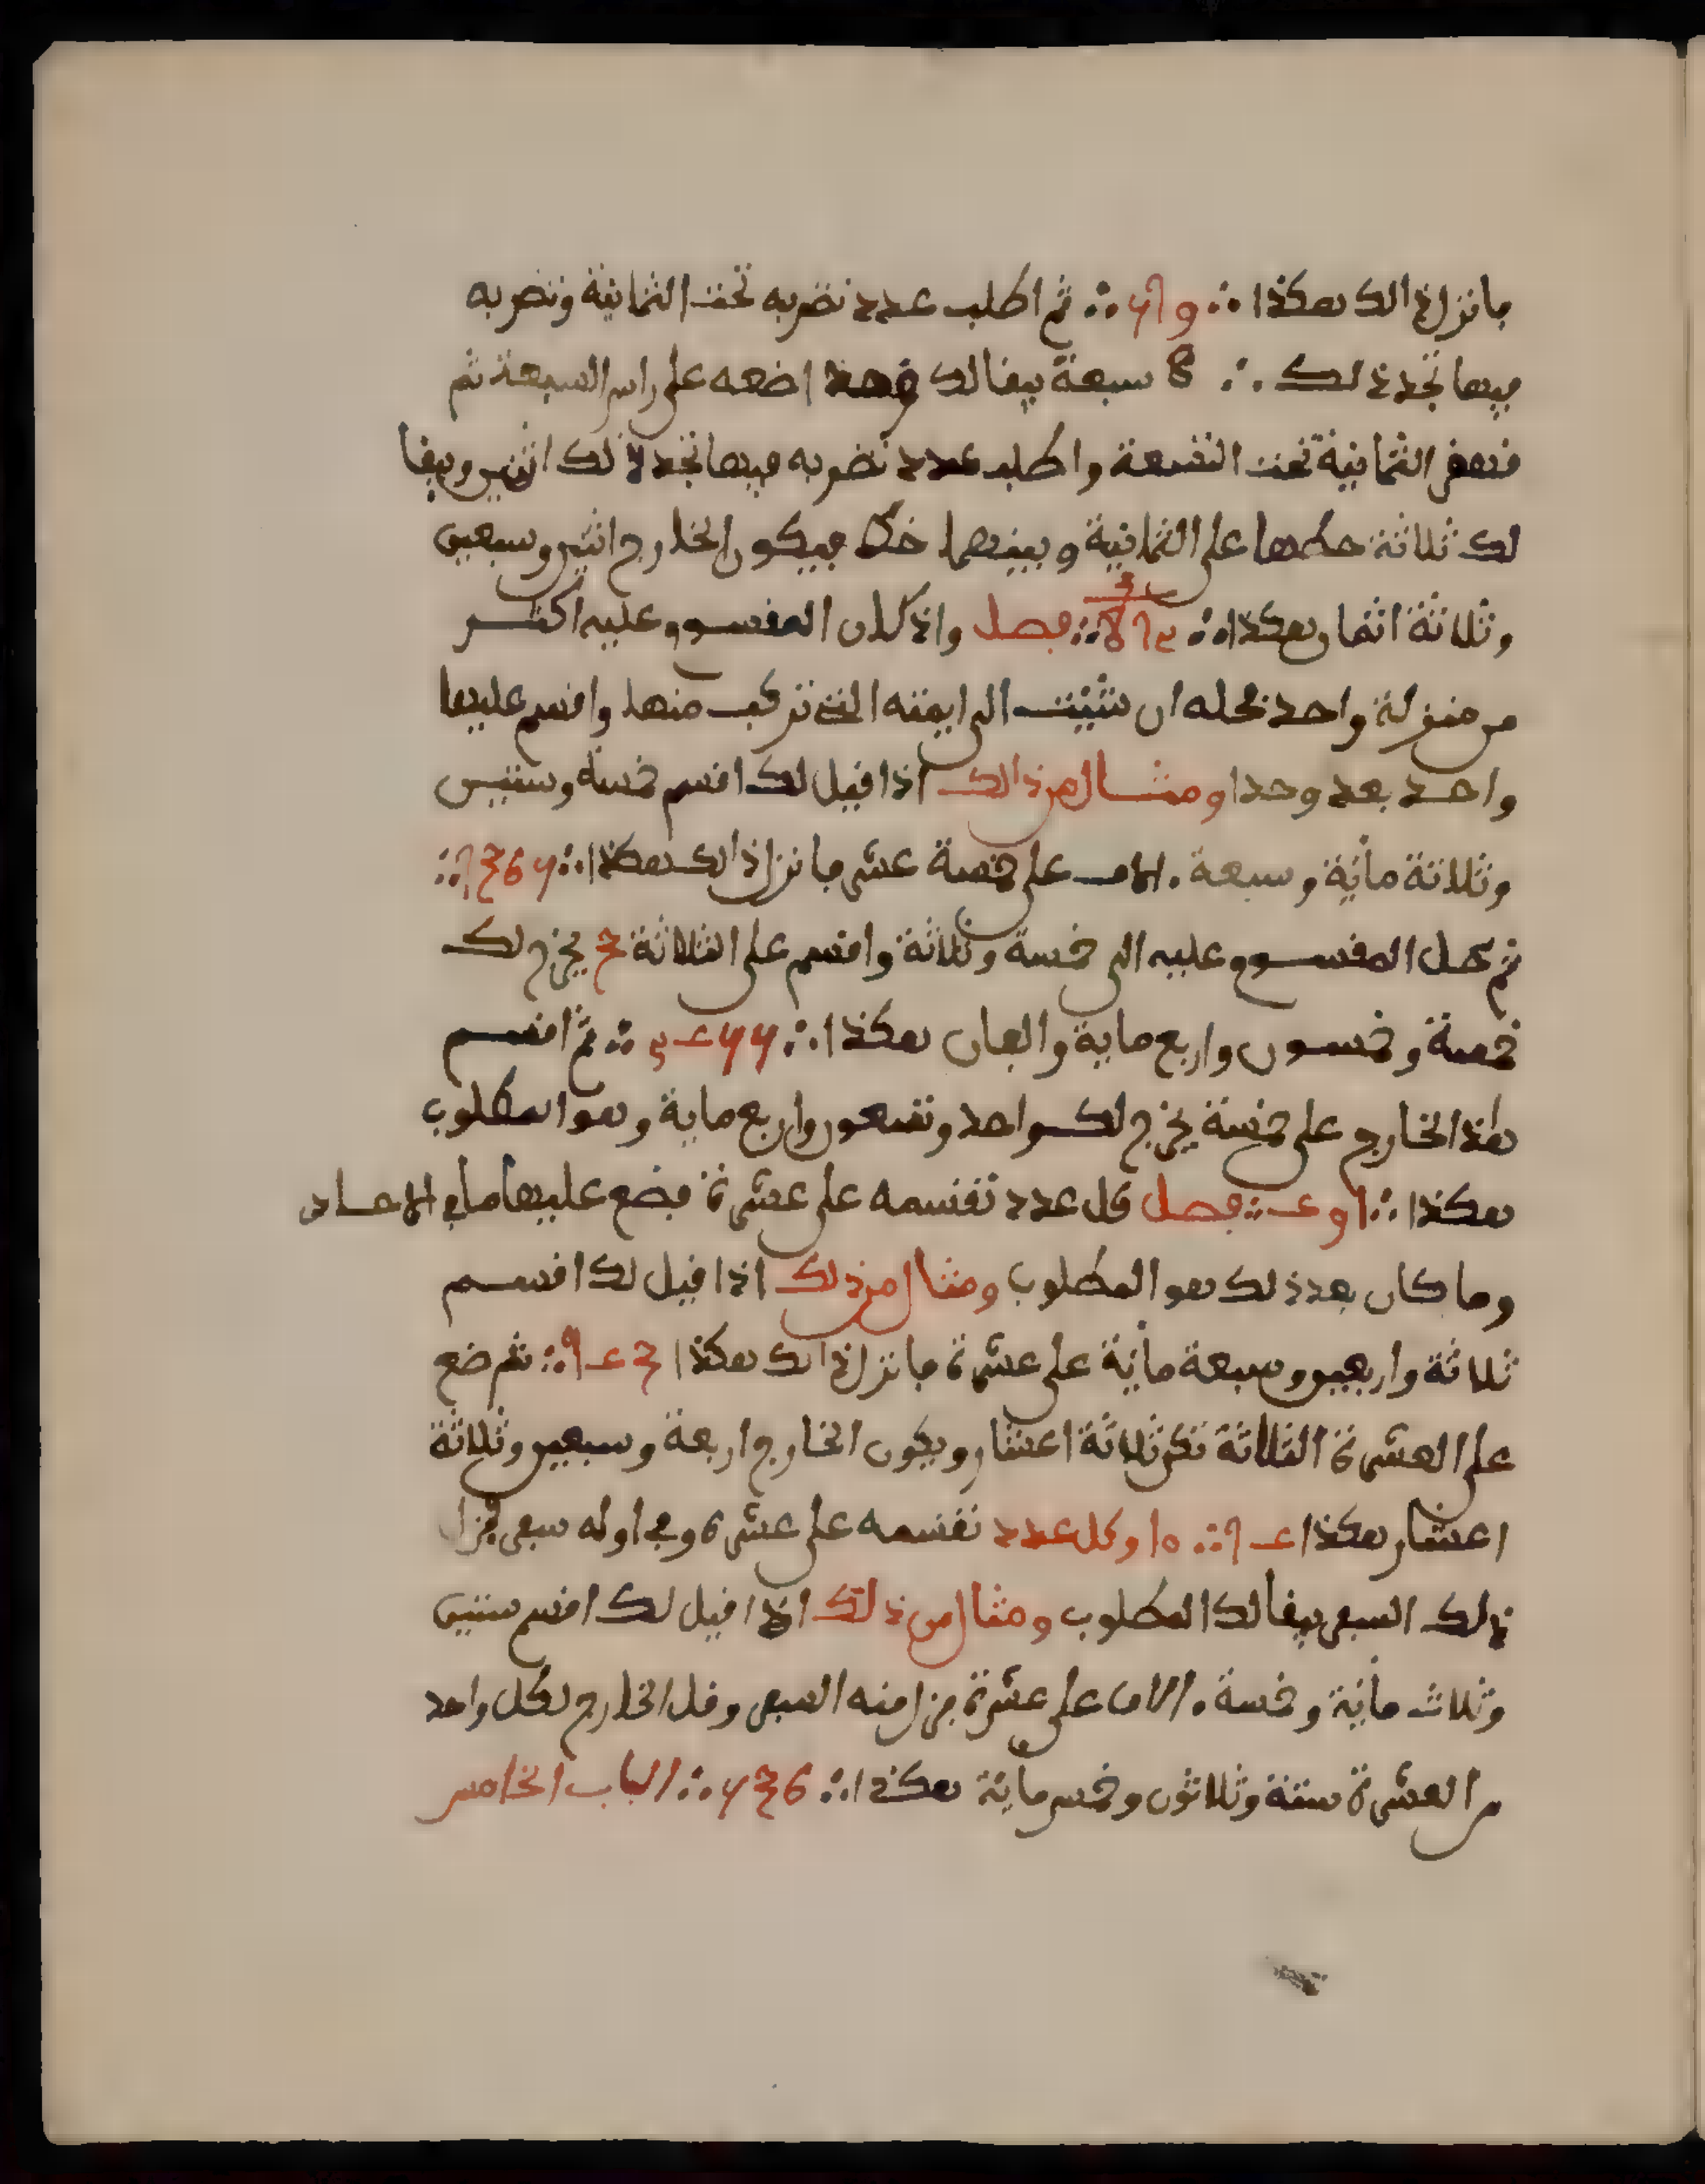 فانزل ذالك هكذا ∴ و٩٧ ∴ ثم اطلب عدد تضربه تحت الثمانية وتضربه
فيها تجد ذلك ∴ 8 سبعة يبقا لك اضعه على راس السبعة ثم
تقهقر الثمانية تحت التسعة واطلب عدد تضربه فيها تجد ذلك اثنين ويبقا
لك ثلاثة حطها على الثمانية وبينهما خط فيكون الخارج اثنين وسبعين
وثلاثة اثمان هكذا ∴ فصل واذ كان المقسوم عليه اكثر
من منزلة واحد فحله ان شئت الى ايمته التي تركب منها واقسم عليها
واحد بعد وحدا ومثال من ذالك اذا قيل لك اقسم خمسة وستين
وثلاثة مائة وسبعة ءالاف على خمسة عشر فانزل ذالك هكذا ∴
ثم تحل المقسوم عليه الى خمسة وثلاثة واقسم على الثلاثة يخرج لك
خمسة وخمسون واربع ماية والفان هكذا ∴ ثم اقسم
هذا الخارج على خمسة يخرج لك واحد وتسعون واربع ماية وهو المطلوب
هكذا ∴ فصل كل عدد تقسمه على عشرة فضع عليها ما في الاحاد
وما كان بعد ذلك هو المطلوب ومثال من ذلك اذا قيل لك اقسم
ثلاثة واربعين وسبعة مائة على عشرة فانزل ذالك هكذا ∴ ثم ضع
على العشرة الثلاثة تكن ثلاثة اعشار ويكون الخارج اربعة وسبعين وثلاثة
اعشار هكذا ∴ وكل عدد تقسمه على عشرة وفي اوله صفر فزل
ذلك الصفر يبقا لك المطلوب ومثال من ذلك اذا قيل لك اقسم ستين
وثلاث مائة وخمسة ءالاف على عشرة فزل منه الصفر وقل الخارج لكل واحد
من العشرة ستة وثلاثون وخمس مائة هكذا ∴ ∴ الباب الخامس